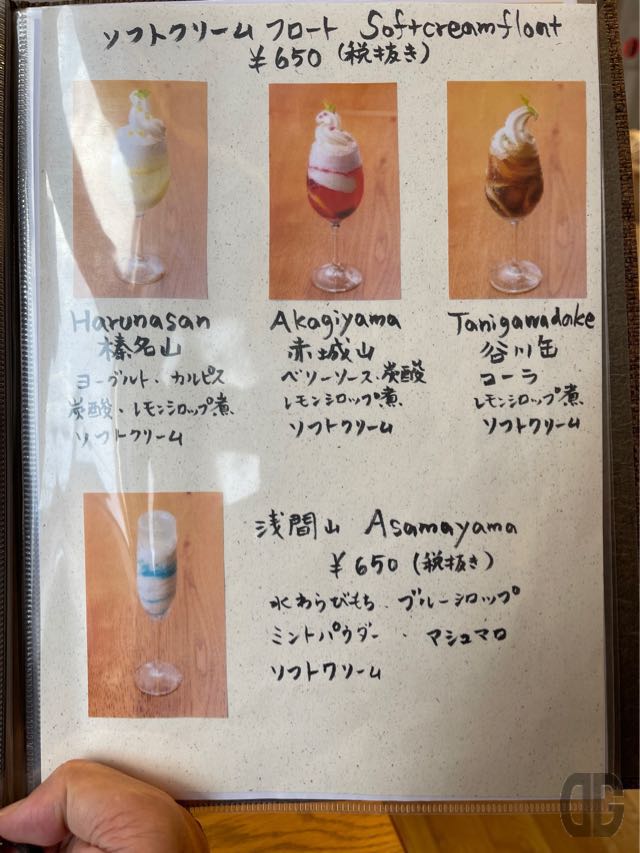 ソフトクリーム フロート Softcreamfloat
¥650 (税抜き)
Harunasan
榛名山
ヨーグルト・カルピス
炭酸・レモンシロップ煮
ソフトクリーム
Akagiyama
赤城山
ベリーソース・炭酸
レモンシロップ煮
ソフトクリーム
Tanigawadake
谷川缶
コーラ
レモンシロップ煮
ソフトクリーム
浅間山 Asamayama
¥650 (税抜き)
水わらびもち・ブルーシロップ
ミントパウダー・マシュマロ
ソフトクリーム
DG